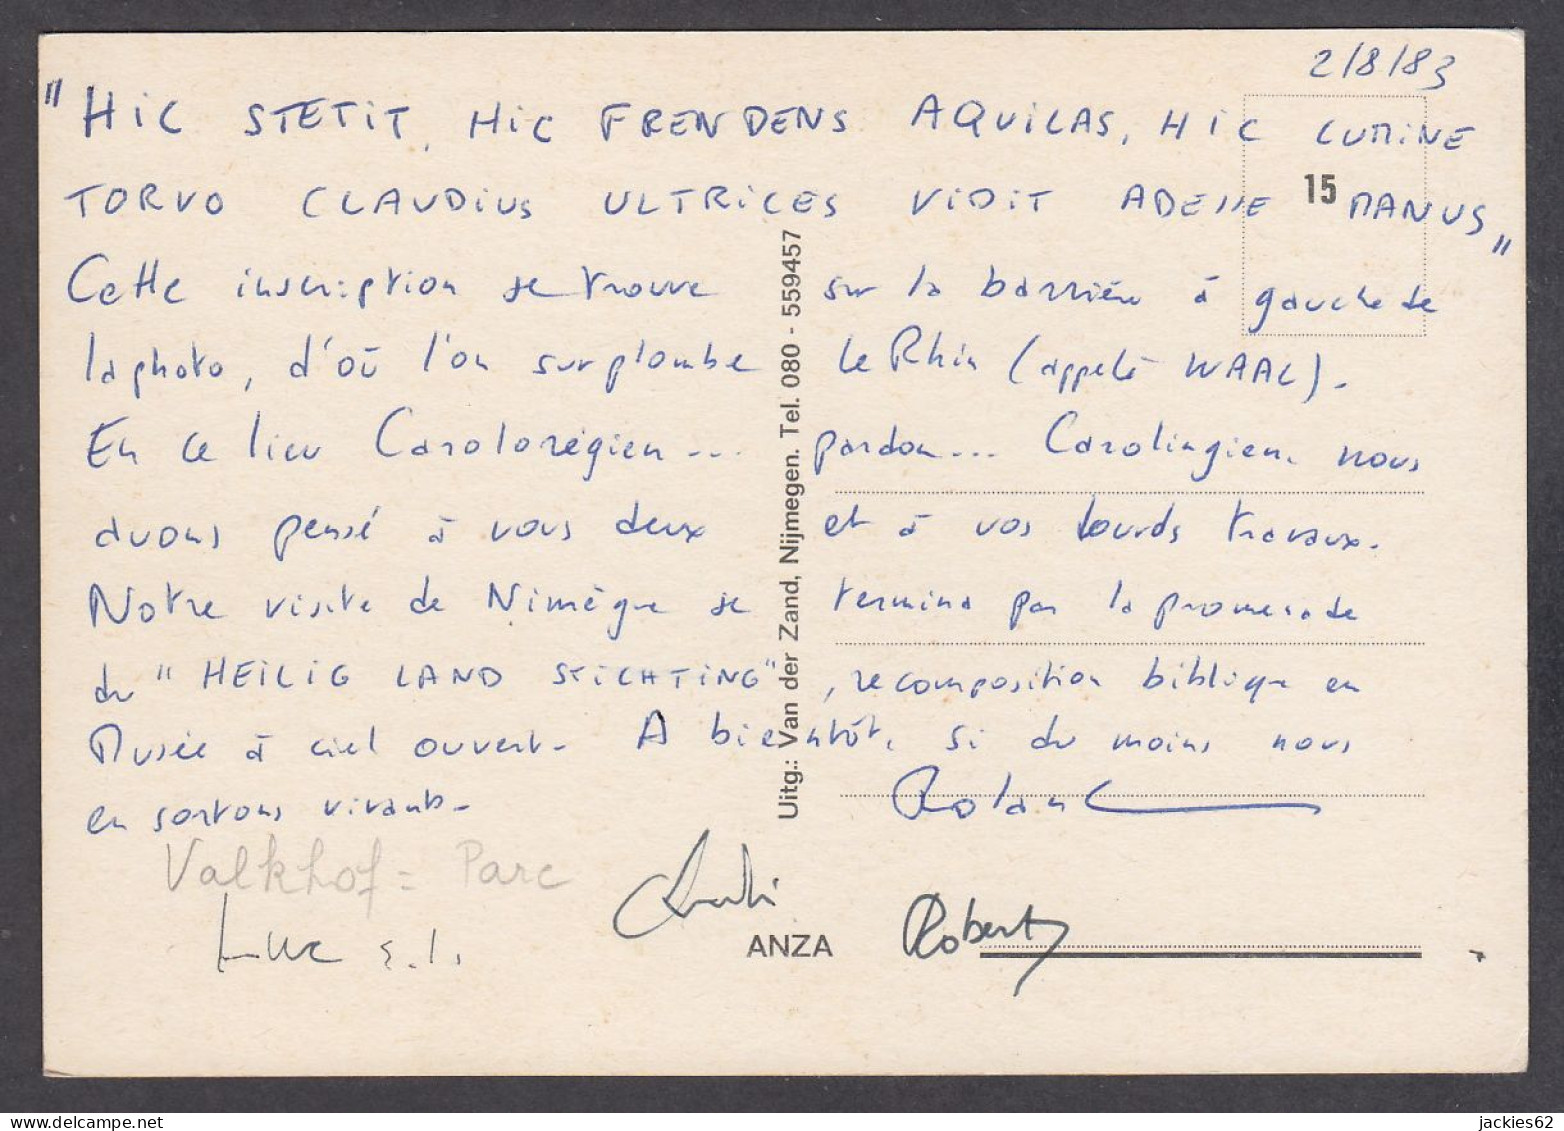 2/8/83
"HIC STETIT, HIC FRENDENS AQUILAS, HIC LUMINE
TORVO CLAUDIUS ULTRICES VIDIT ADESSE MANUS"
15
Cette inscription se trouve sur la barrière à gauche de
la photo, d'où l'on surplombe le Rhin (appelé WAAL).
En ce lieu Carolorégien... pardon... Carolingien, nous
avons pensé à vous deux et à vos lourds travaux.
Notre visite de Nimègue se termina par la promenade
du "HEILIG LAND STICHTING", recomposition biblique en
Musée à ciel ouvert. A bientôt, si du moins nous
en sortons vivants.
Roland
Valkhof = Parc
Luc
Robert
ANZA
Uitg.: Van der Zand, Nijmegen. Tel. 080 - 559457
www.delcampe.net
jackies62